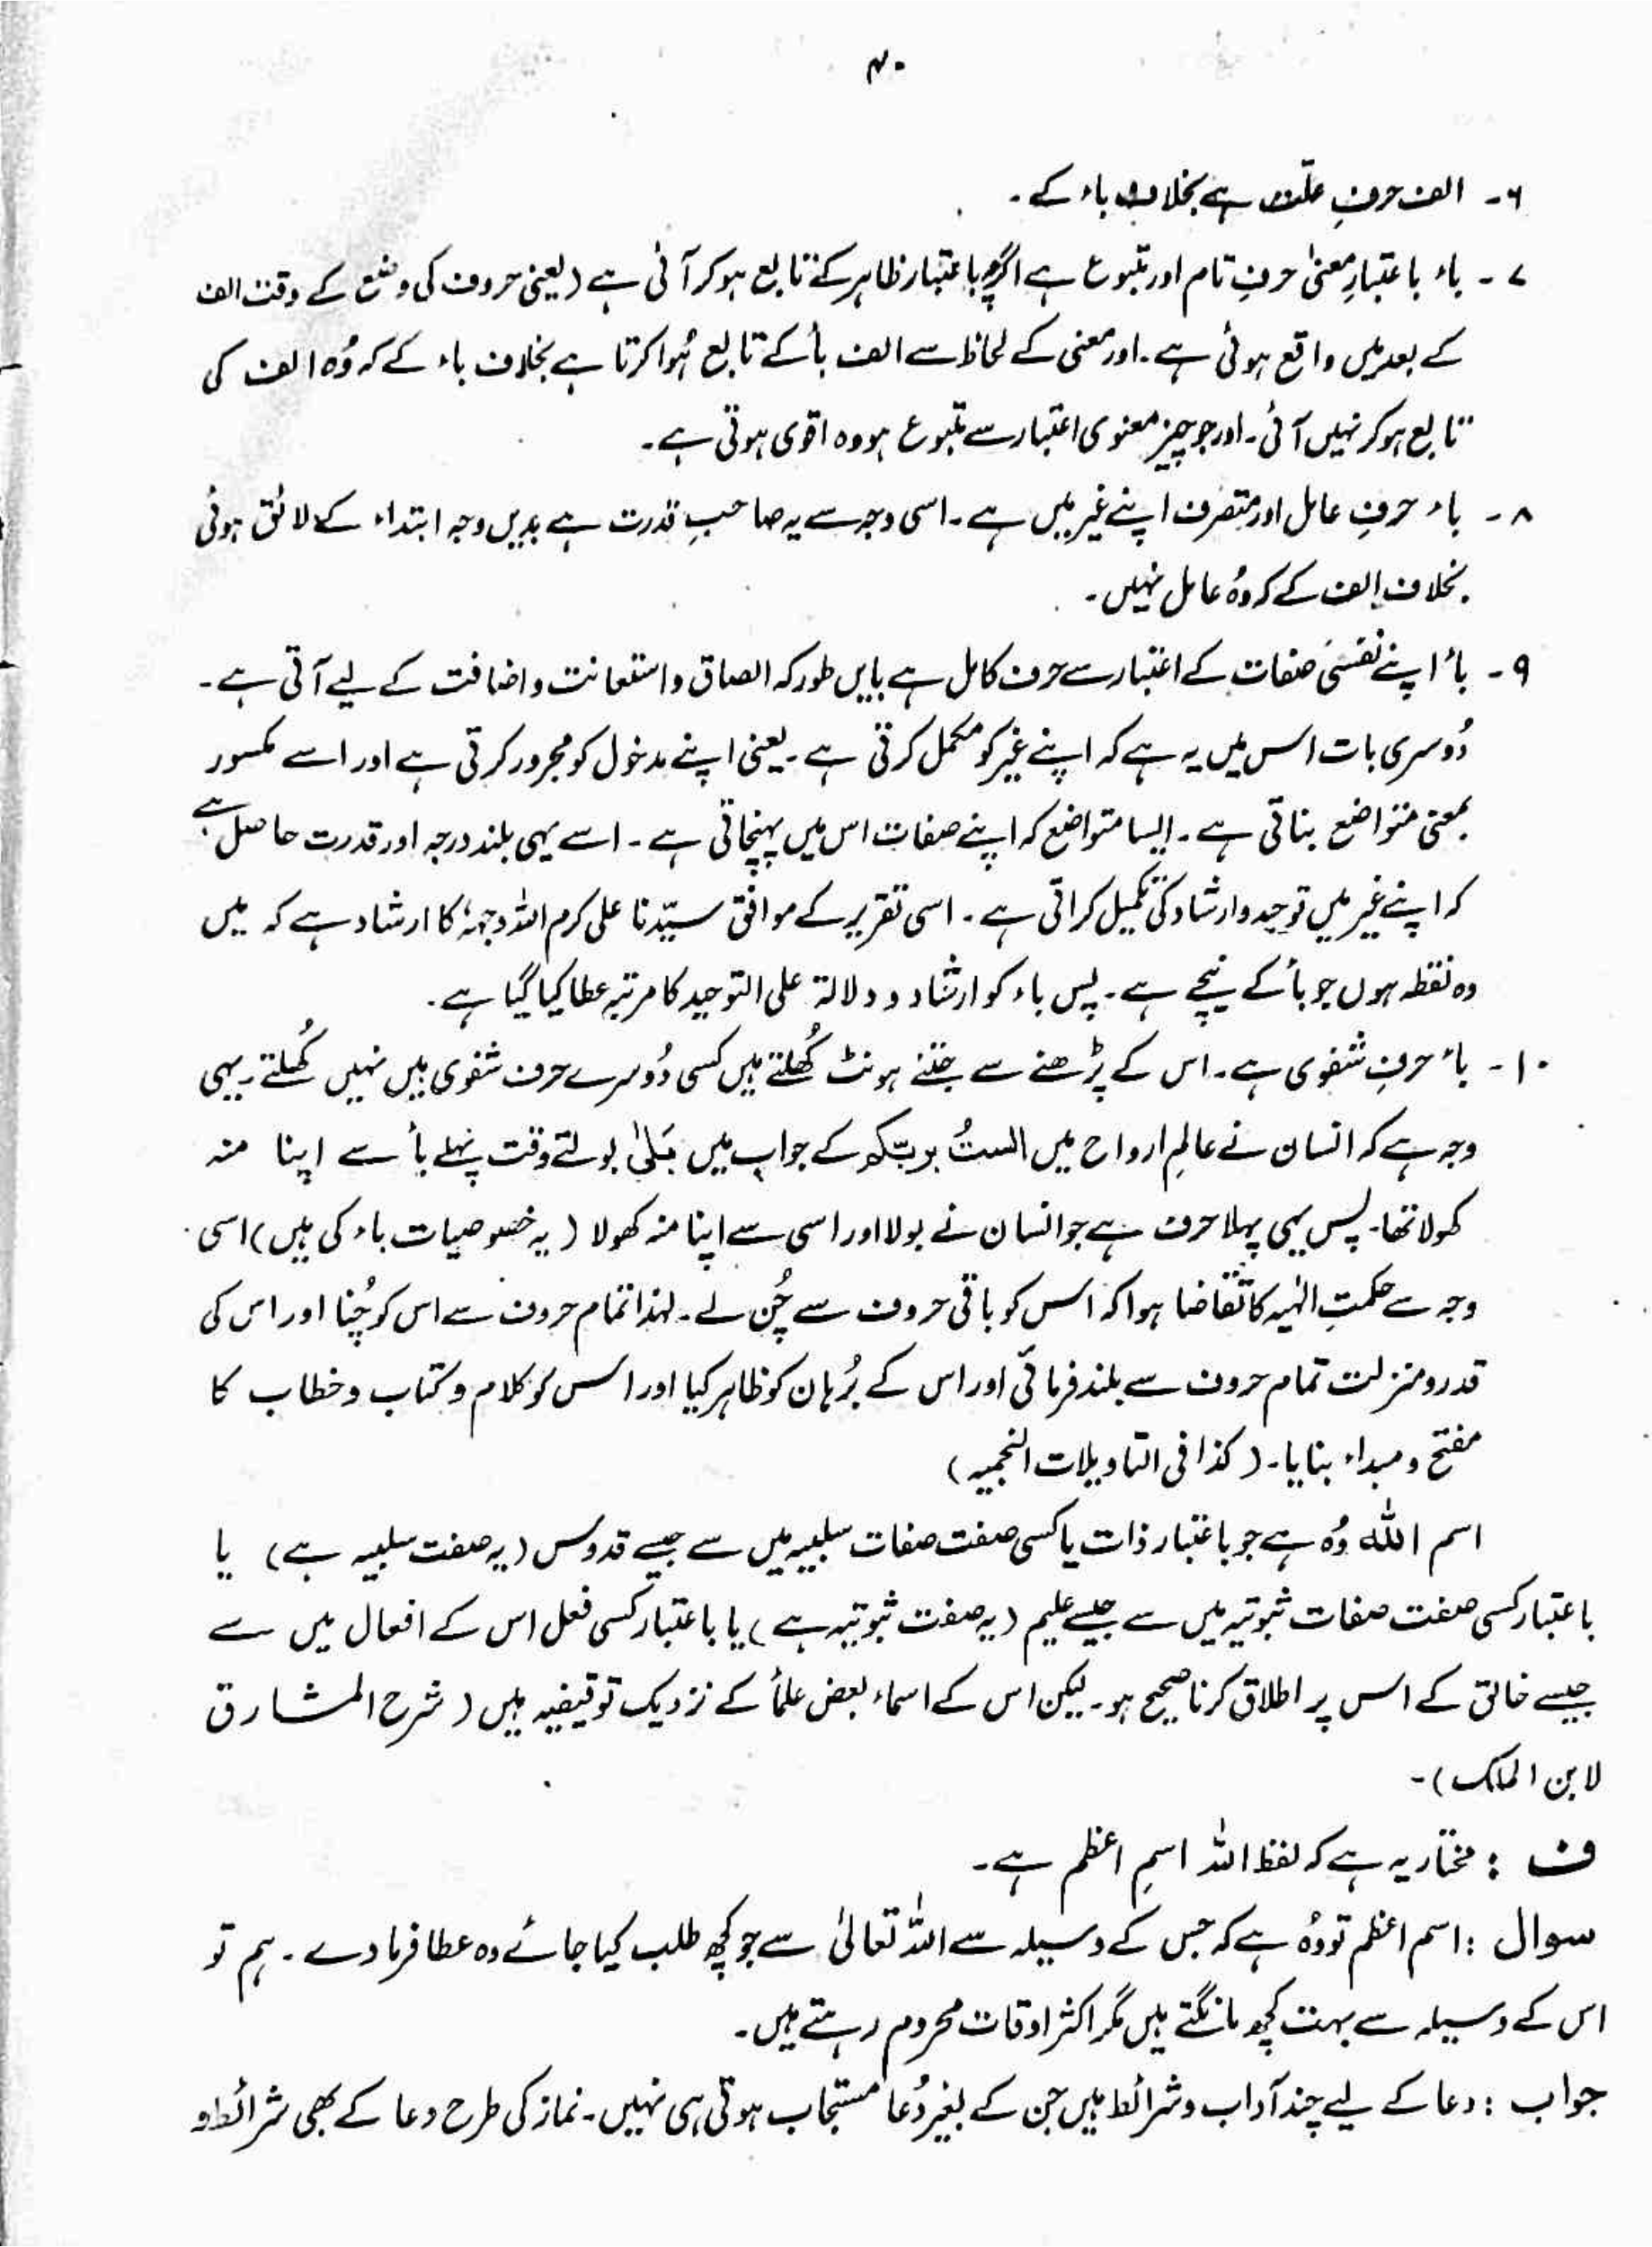 ۴۰
۶- الف حرفِ علّت ہے بخلاف باء کے۔
۷- باء باعتبارِ معنیٰ حرفِ تام اور متبوع ہے اگرچہ باعتبار ظاہر کے تابع ہوکر آئی ہے (یعنی حروف کی وضع کے وقت الف
کے بعد میں واقع ہوئی ہے۔ اور معنی کے لحاظ سے الف بأ کے تابع ہُوا کرتا ہے بخلاف باء کے کہ وُہ الف کی
تابع ہوکر نہیں آئی۔ اور جو چیز معنوی اعتبار سے متبوع ہو وہ اقوی ہوتی ہے۔
۸- باء حرفِ عامل اور متصرف اپنے غیر میں ہے۔ اسی وجہ سے یہ صاحبِ قدرت ہے بدیں وجہ ابتداء کے لائق ہوئی
بخلاف الف کے کہ وُہ عامل نہیں۔
۹- بأ اپنے نفسی صفات کے اعتبار سے حرف کامل ہے بایں طور کہ الصاق و استعانت و اضافت کے لیے آتی ہے۔
دُوسری بات اس میں یہ ہے کہ اپنے غیر کو مکمل کرتی ہے۔ یعنی اپنے مدخول کو مجرور کرتی ہے اور اسے مکسور
بمعنی متواضع بناتی ہے۔ ایسا متواضع کہ اپنے صفات اس میں پہنچاتی ہے۔ اسے یہی بلند درجہ اور قدرت حاصل ہے
کہ اپنے غیر میں توحید و ارشاد کی تکمیل کراتی ہے۔ اسی تقریر کے موافق سیّدنا علی کرم اللہ وجہہٗ کا ارشاد ہے کہ میں
وہ نقطہ ہوں جو بأ کے نیچے ہے۔ پس باء کو ارشاد و دلالۃ علی التوحید کا مرتبہ عطا کیا گیا ہے۔
۱۰- بأ حرفِ شفوی ہے۔ اس کے پڑھنے سے جتنے ہونٹ کُھلتے ہیں کسی دُوسرے حرف شفوی میں نہیں کُھلتے۔ یہی
وجہ ہے کہ انسان نے عالمِ ارواح میں الستُ بربّکم کے جواب میں بَلیٰ بولتے وقت پہلے بأ سے اپنا منہ
کھولا تھا۔ پس یہی پہلا حرف ہے جو انسان نے بولا اور اسی سے اپنا منہ کھولا (یہ خصوصیات باء کی ہیں) اسی
وجہ سے حکمتِ الٰہیہ کا تقاضا ہوا کہ اس کو باقی حروف سے چُن لے۔ لہٰذا تمام حروف سے اس کو چُنا اور اس کی
قدر و منزلت تمام حروف سے بلند فرمائی اور اس کے بُرہان کو ظاہر کیا اور اس کو کلام و کتاب و خطاب کا
مفتح و مبداء بنایا۔ (کذا فی التاویلات النجمیہ)
اسم اللہ وُہ ہے جو باعتبار ذات یا کسی صفت صفات سلبیہ میں سے جیسے قدوس (یہ صفت سلبیہ ہے) یا
باعتبار کسی صفت صفات ثبوتیہ میں سے جیسے علیم (یہ صفت ثبوتیہ ہے) یا باعتبار کسی فعل اس کے افعال میں سے
جیسے خالق کے اس پر اطلاق کرنا صحیح ہو۔ لیکن اس کے اسماء بعض علمأ کے نزدیک توقیفیہ ہیں (شرح المشارق
لابن الملک)۔
ف : مختار یہ ہے کہ لفظ اللہ اسمِ اعظم ہے۔
سوال : اسم اعظم تو وُہ ہے کہ جس کے وسیلہ سے اللہ تعالیٰ سے جو کچھ طلب کیا جائے وہ عطا فرما دے۔ ہم تو
اس کے وسیلہ سے بہت کچھ مانگتے ہیں مگر اکثر اوقات محروم رہتے ہیں۔
جواب : دعا کے لیے چند آداب و شرائط ہیں جن کے بغیر دُعا مستجاب ہوتی ہی نہیں۔ نماز کی طرح دعا کے بھی شرائط و